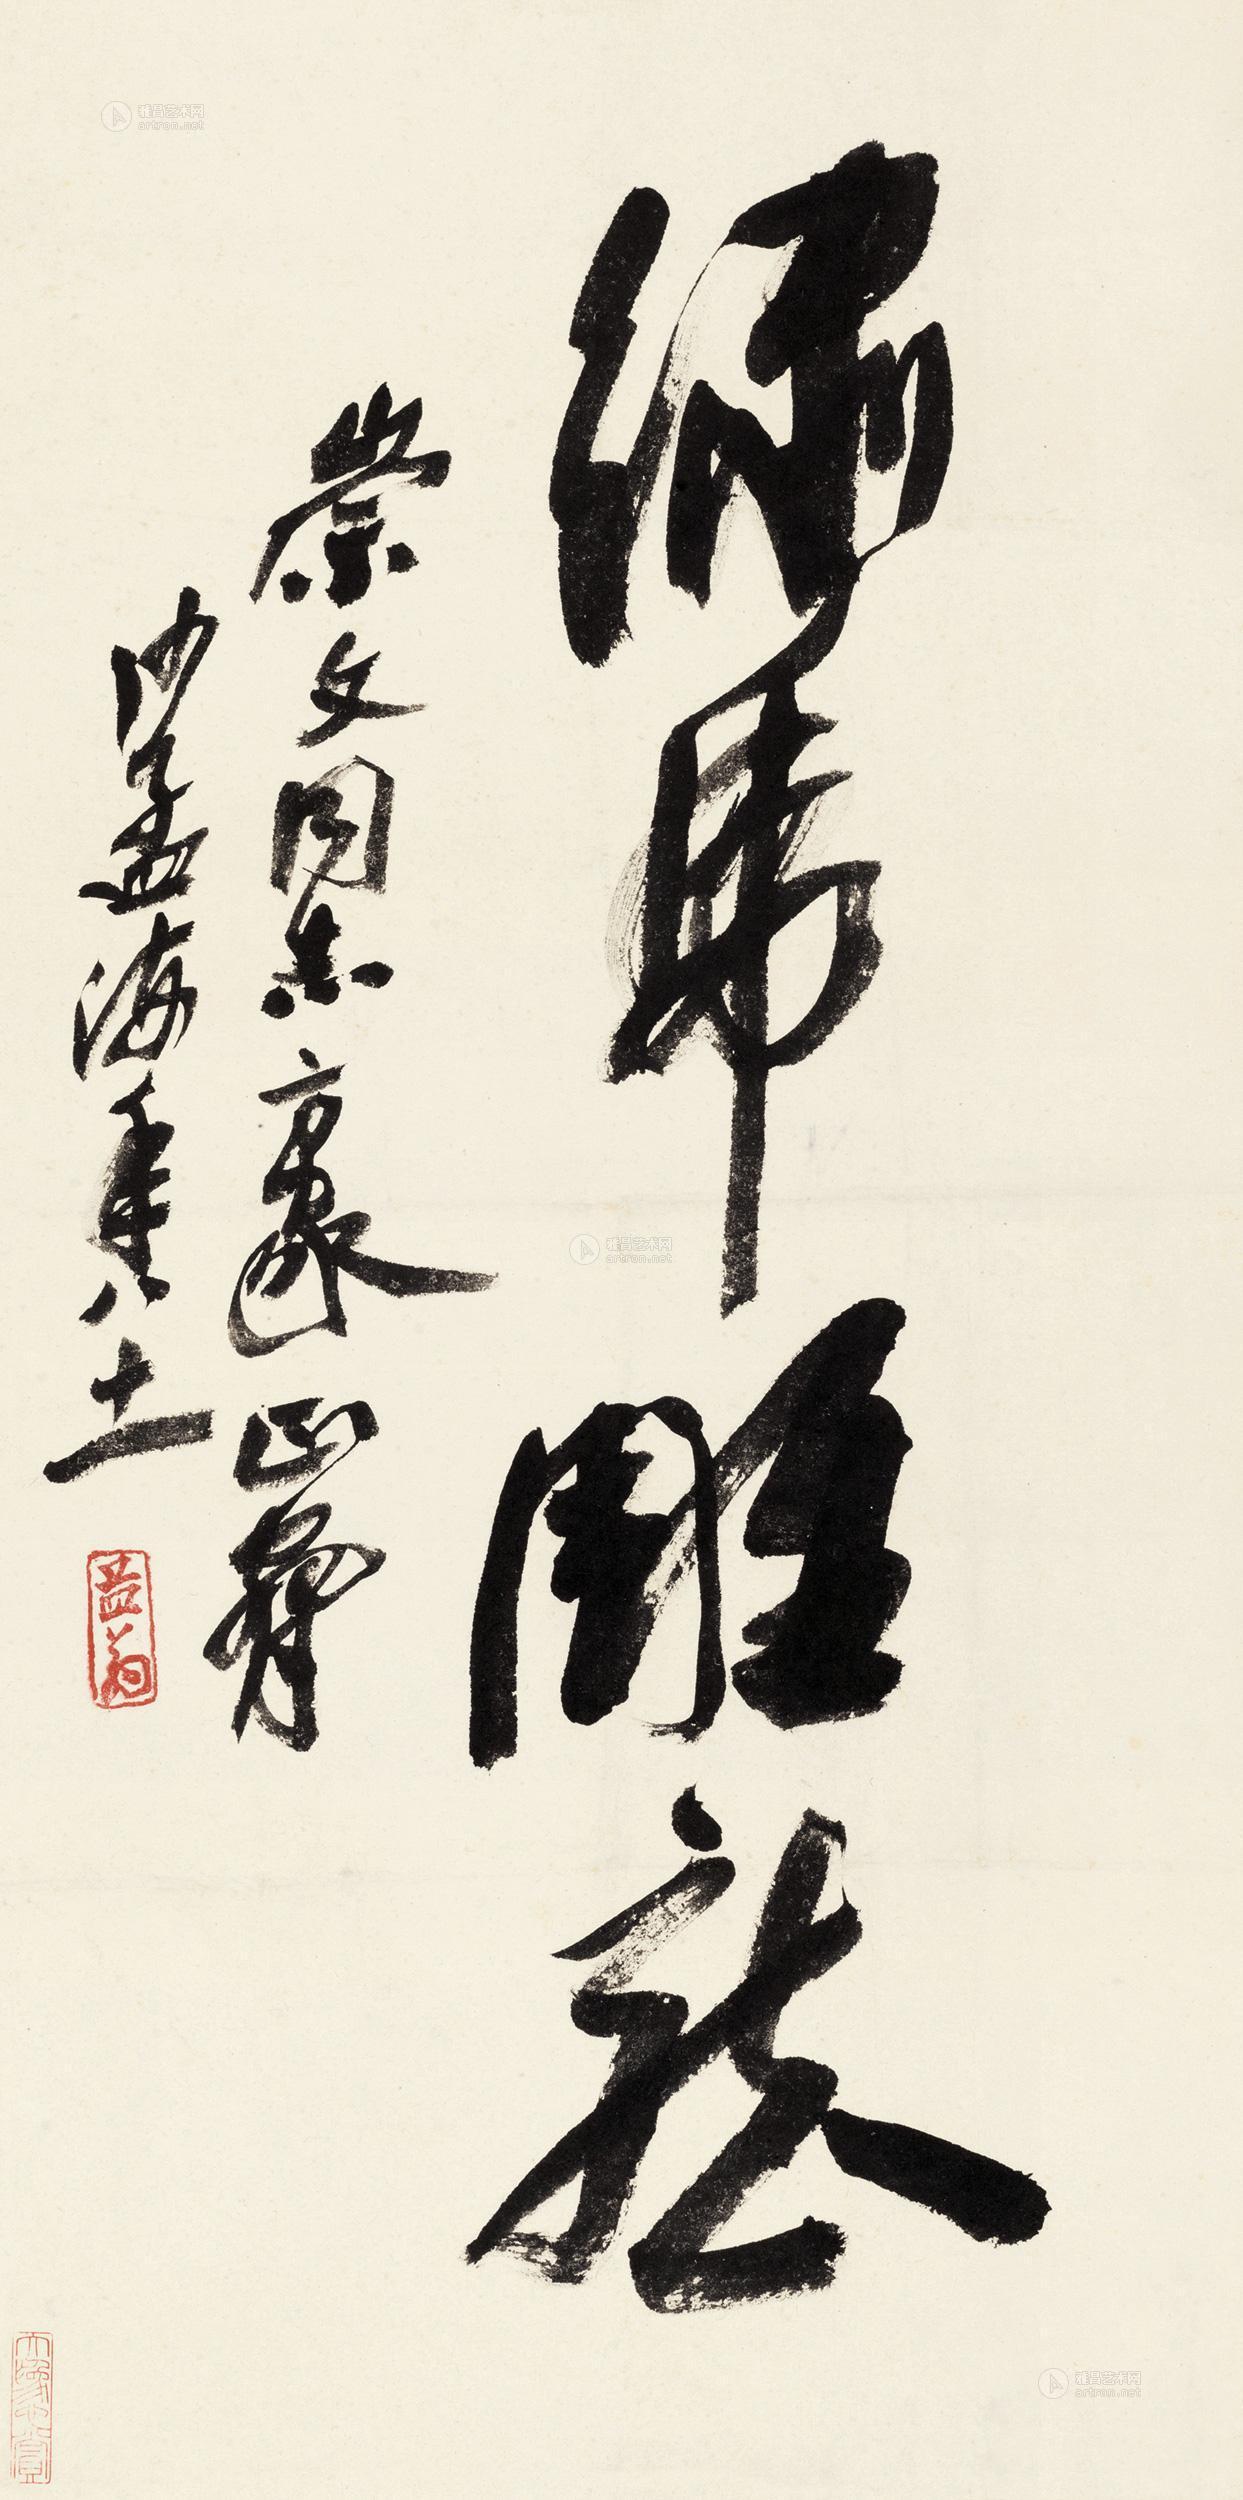 繡虎雕龍
崇文同志 正
沙孟海年八十一
雅昌艺术网
artron.net
雅昌艺术网
artron.net
雅昌艺术网
artron.net